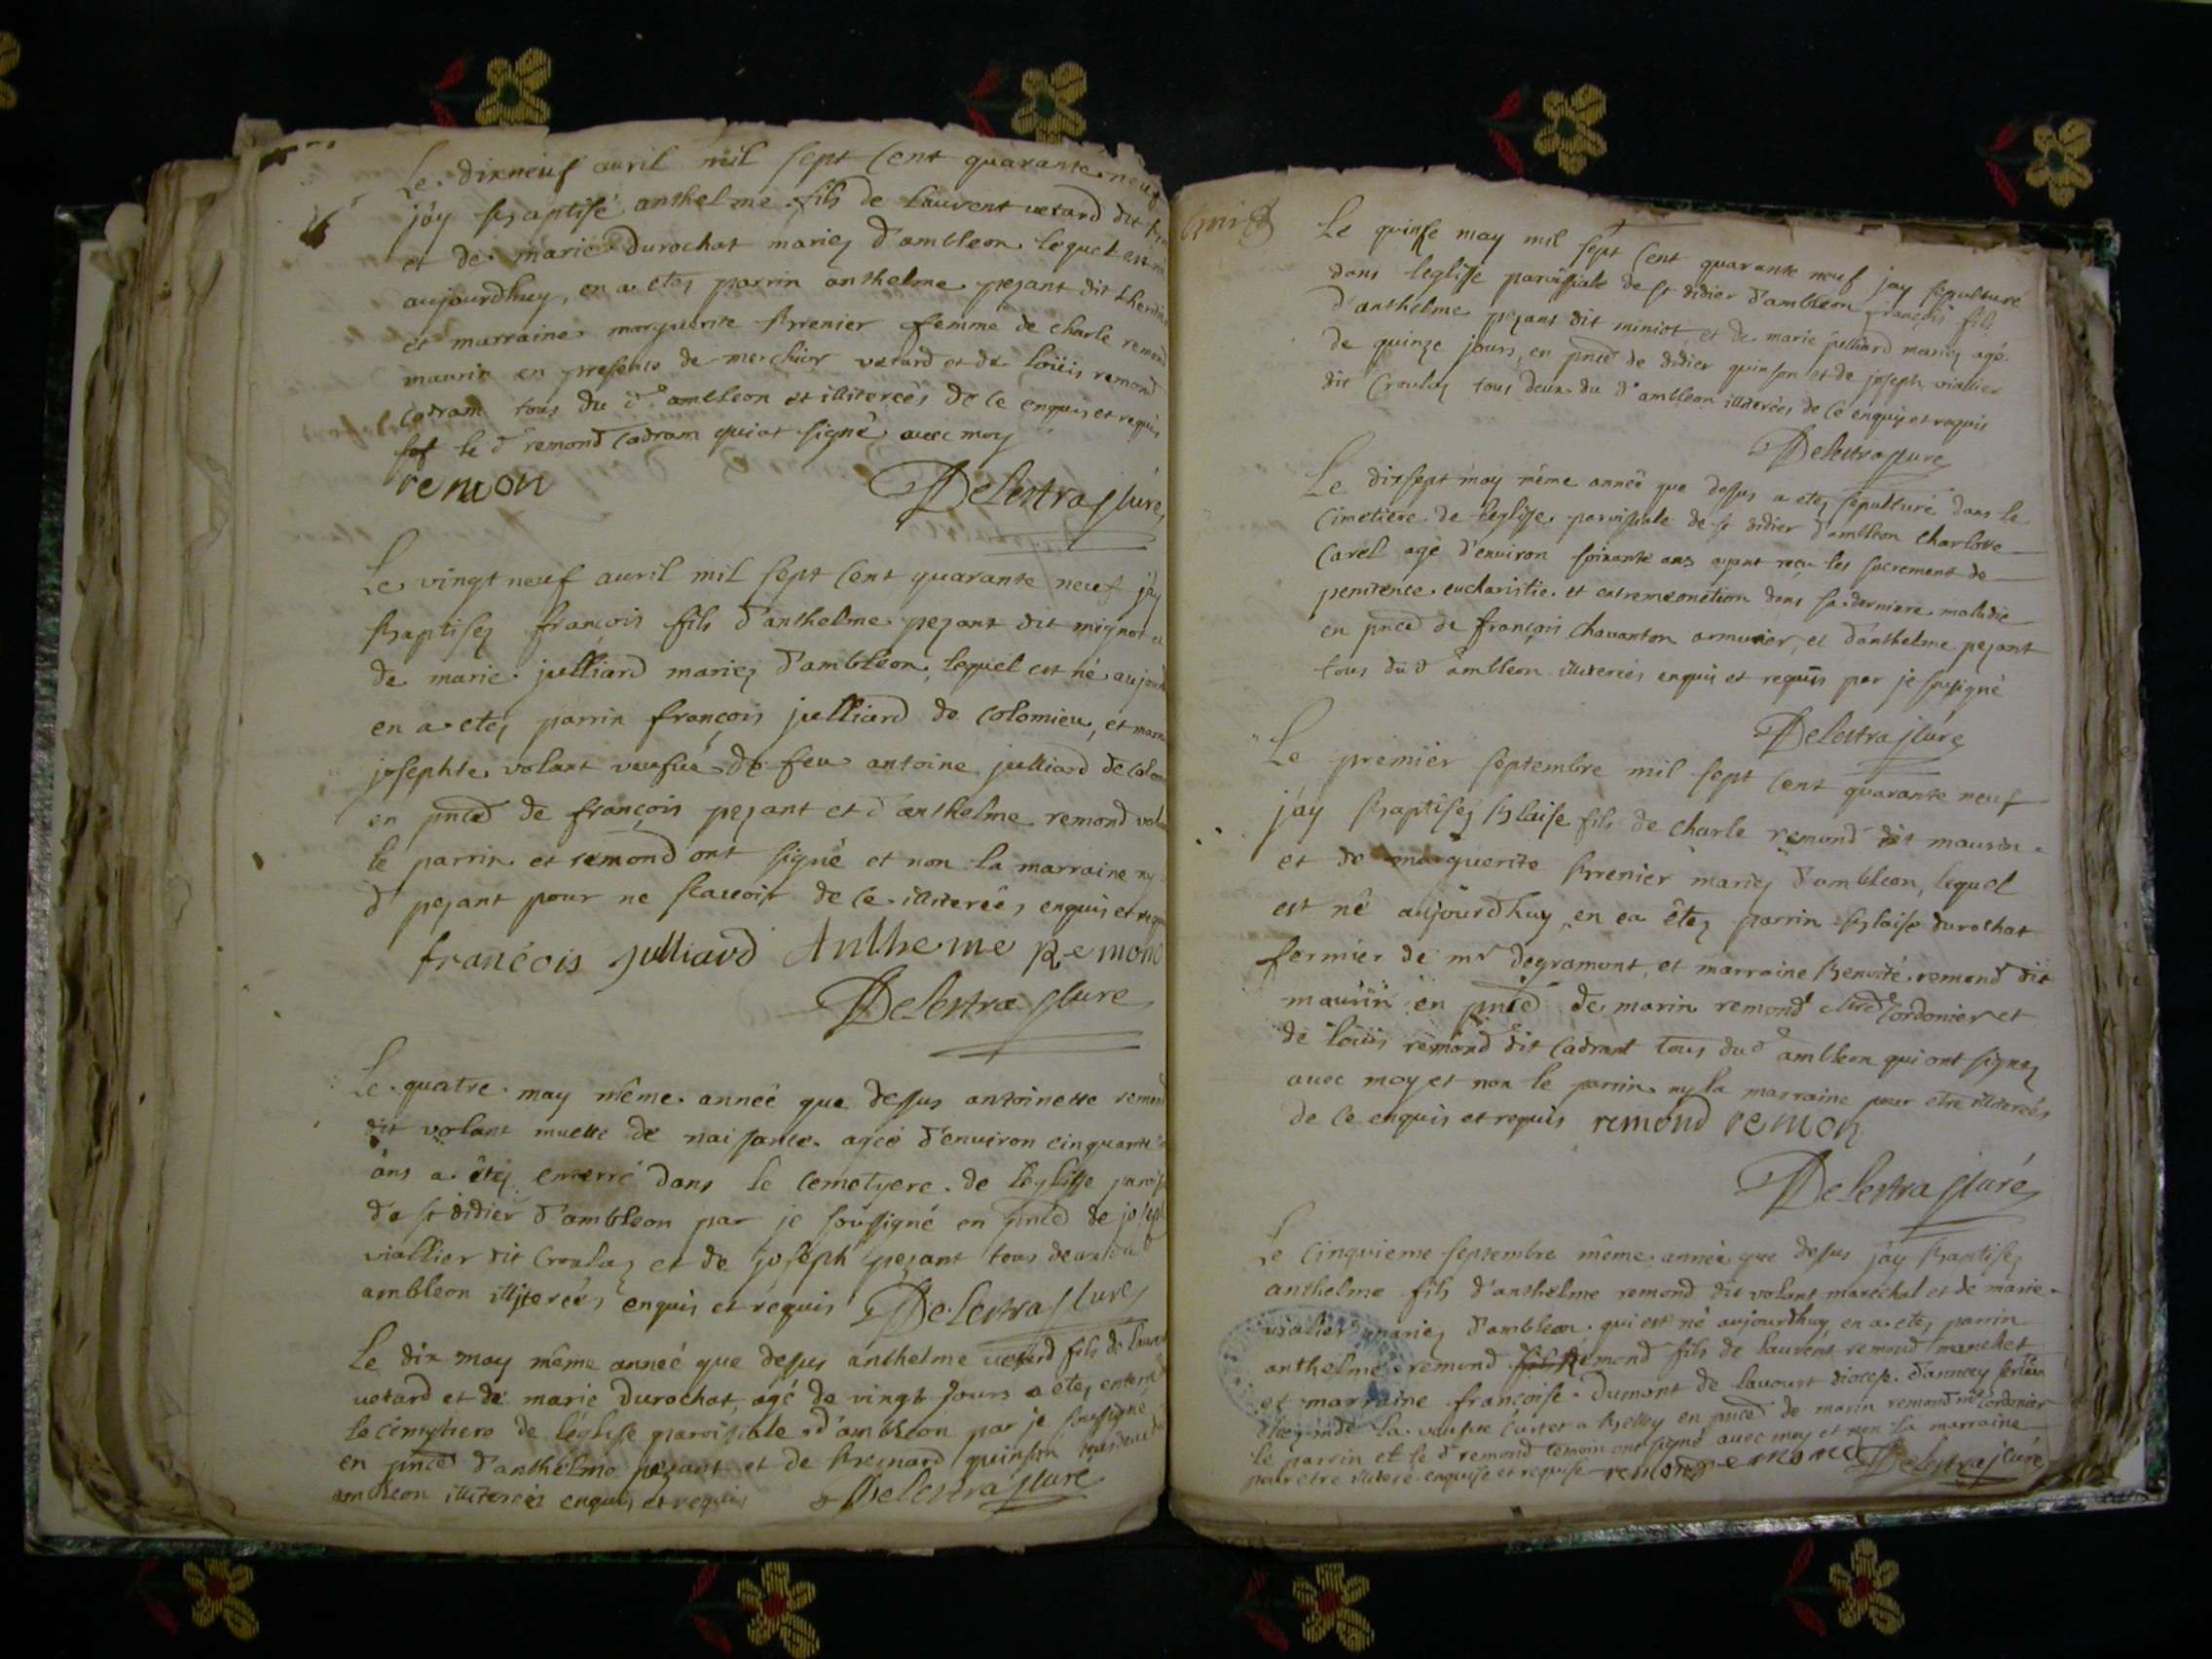 Le dixneuf auril mil sept cent quarante neuf
jáy baptisé anthelme fils de laurent vetard dit
et de marie Durochat mariez d'ambleon lequel est né
aujourdhuy, en a etez parrin anthelme pezant dit
et marraine marguerite brenier femme de charle remond
maurin en presence de merchior vetard et de loüis remond
cadram tous du d ambleon et illiterees de ce enquis et requis
le d remond cadram qui at signé auec moy
remon Delestra Curé
Le vingt neuf auril mil sept cent quarante neuf jáy
baptisez françois fils d'anthelme pezant dit mignot et
de marie julliard mariez d'ambléon, lequel est né aujourd
en a etez parrin françois julliard de colomieu, et marr
josephte volant veufue de feu antoine julliard de Colom
en pnce de françois pezant et d'anthelme remond vol
le parrin et remond ont signé et non la marraine ny
d pezant pour ne scauoir de ce illiterées enquis et requi
francois julliard Antheme Remond
Delestra Cure
Le quatre may même année que dessus antoinette remond
dit volant muette de naisance agée d'enuiron cinquante
ans a êtéz enterré dans le cemetyere de leglisse parois
de st didier d'ambleon par je soussigné en pnce de joseph
viallier dit Croulaz et de joseph pezant tous deux du d
ambleon illiterées enquis et requis Delestra Cure
Le dix may même année que dessus anthelme vetard fils de laure
vetard et de marie Durochat, agé de vingt jours a etez enterré
le cemytiere de léglise paroissiale d'ambleon par je soussigné
en pnce d'anthelme pezant et de bernard quinson tous deux du
ambleon illiterées enquis et requis Delestra Cure
Le quinse may mil sept cent quarante neuf jay sepulturé
dans leglisse paroissiale de st didier d'ambleon françois fils
d'anthelme pezant dit miniot et de marie julliard mariez agé
de quinze jours, en pnce de didier quinson et de joseph viallier
dit Croulaz tous deux du d'ambleon illiterées de ce enquis et requis
Delestra Cure
Le dixsept may même année que dessus a etez sepulturé dans le
Cimetiere de leglisse paroissiale de st didier d'ambleon charlotte
Carel agé d'enuiron soixante ans ayant reçu les sacrement de
penitence eucharistie et extremeonction dans sa derniere maladie
en pnce de françois chauanton armurier, et d'anthelme pezant
tous du d ambleon illiterées enquis et requis par je sousigné
Delestra Cure
Le premier septembre mil sept cent quarante neuf
jáy baptisez blaise fils de charle remond dit maurin
et de marguerite brenier mariez d'ambleon, lequel
est né aujourdhuy, en ea êtez parrin blaise durochat
fermier de mr degramont, et marraine benoite remond dit
maurin en pnce de marin remond cordonier et
de loüis remond dit cadrant tous du d ambleon qui ont signez
auec moy et non le parrin ny la marraine pour etre illiterées
de ce enquis et requis remond remon
Delestra Curé
Le cinquieme septembre même année que dessus jáy baptisez
anthelme fils d'anthelme remond dit volant marechal et de marie
vialier mariez d'ambleon qui est né aujourdhuy en a etez parrin
anthelme remond fils de laurent remond manchet
et marraine françoise Dumont de lauourt diocese d'annecy
la veufue Curtet a belley en pnce de marin remond me cordonier
le parrin et le d remond temoin ont signé auec moy et non la marraine
pour etre illiteré enquise et requise remond remond Delestra Curé